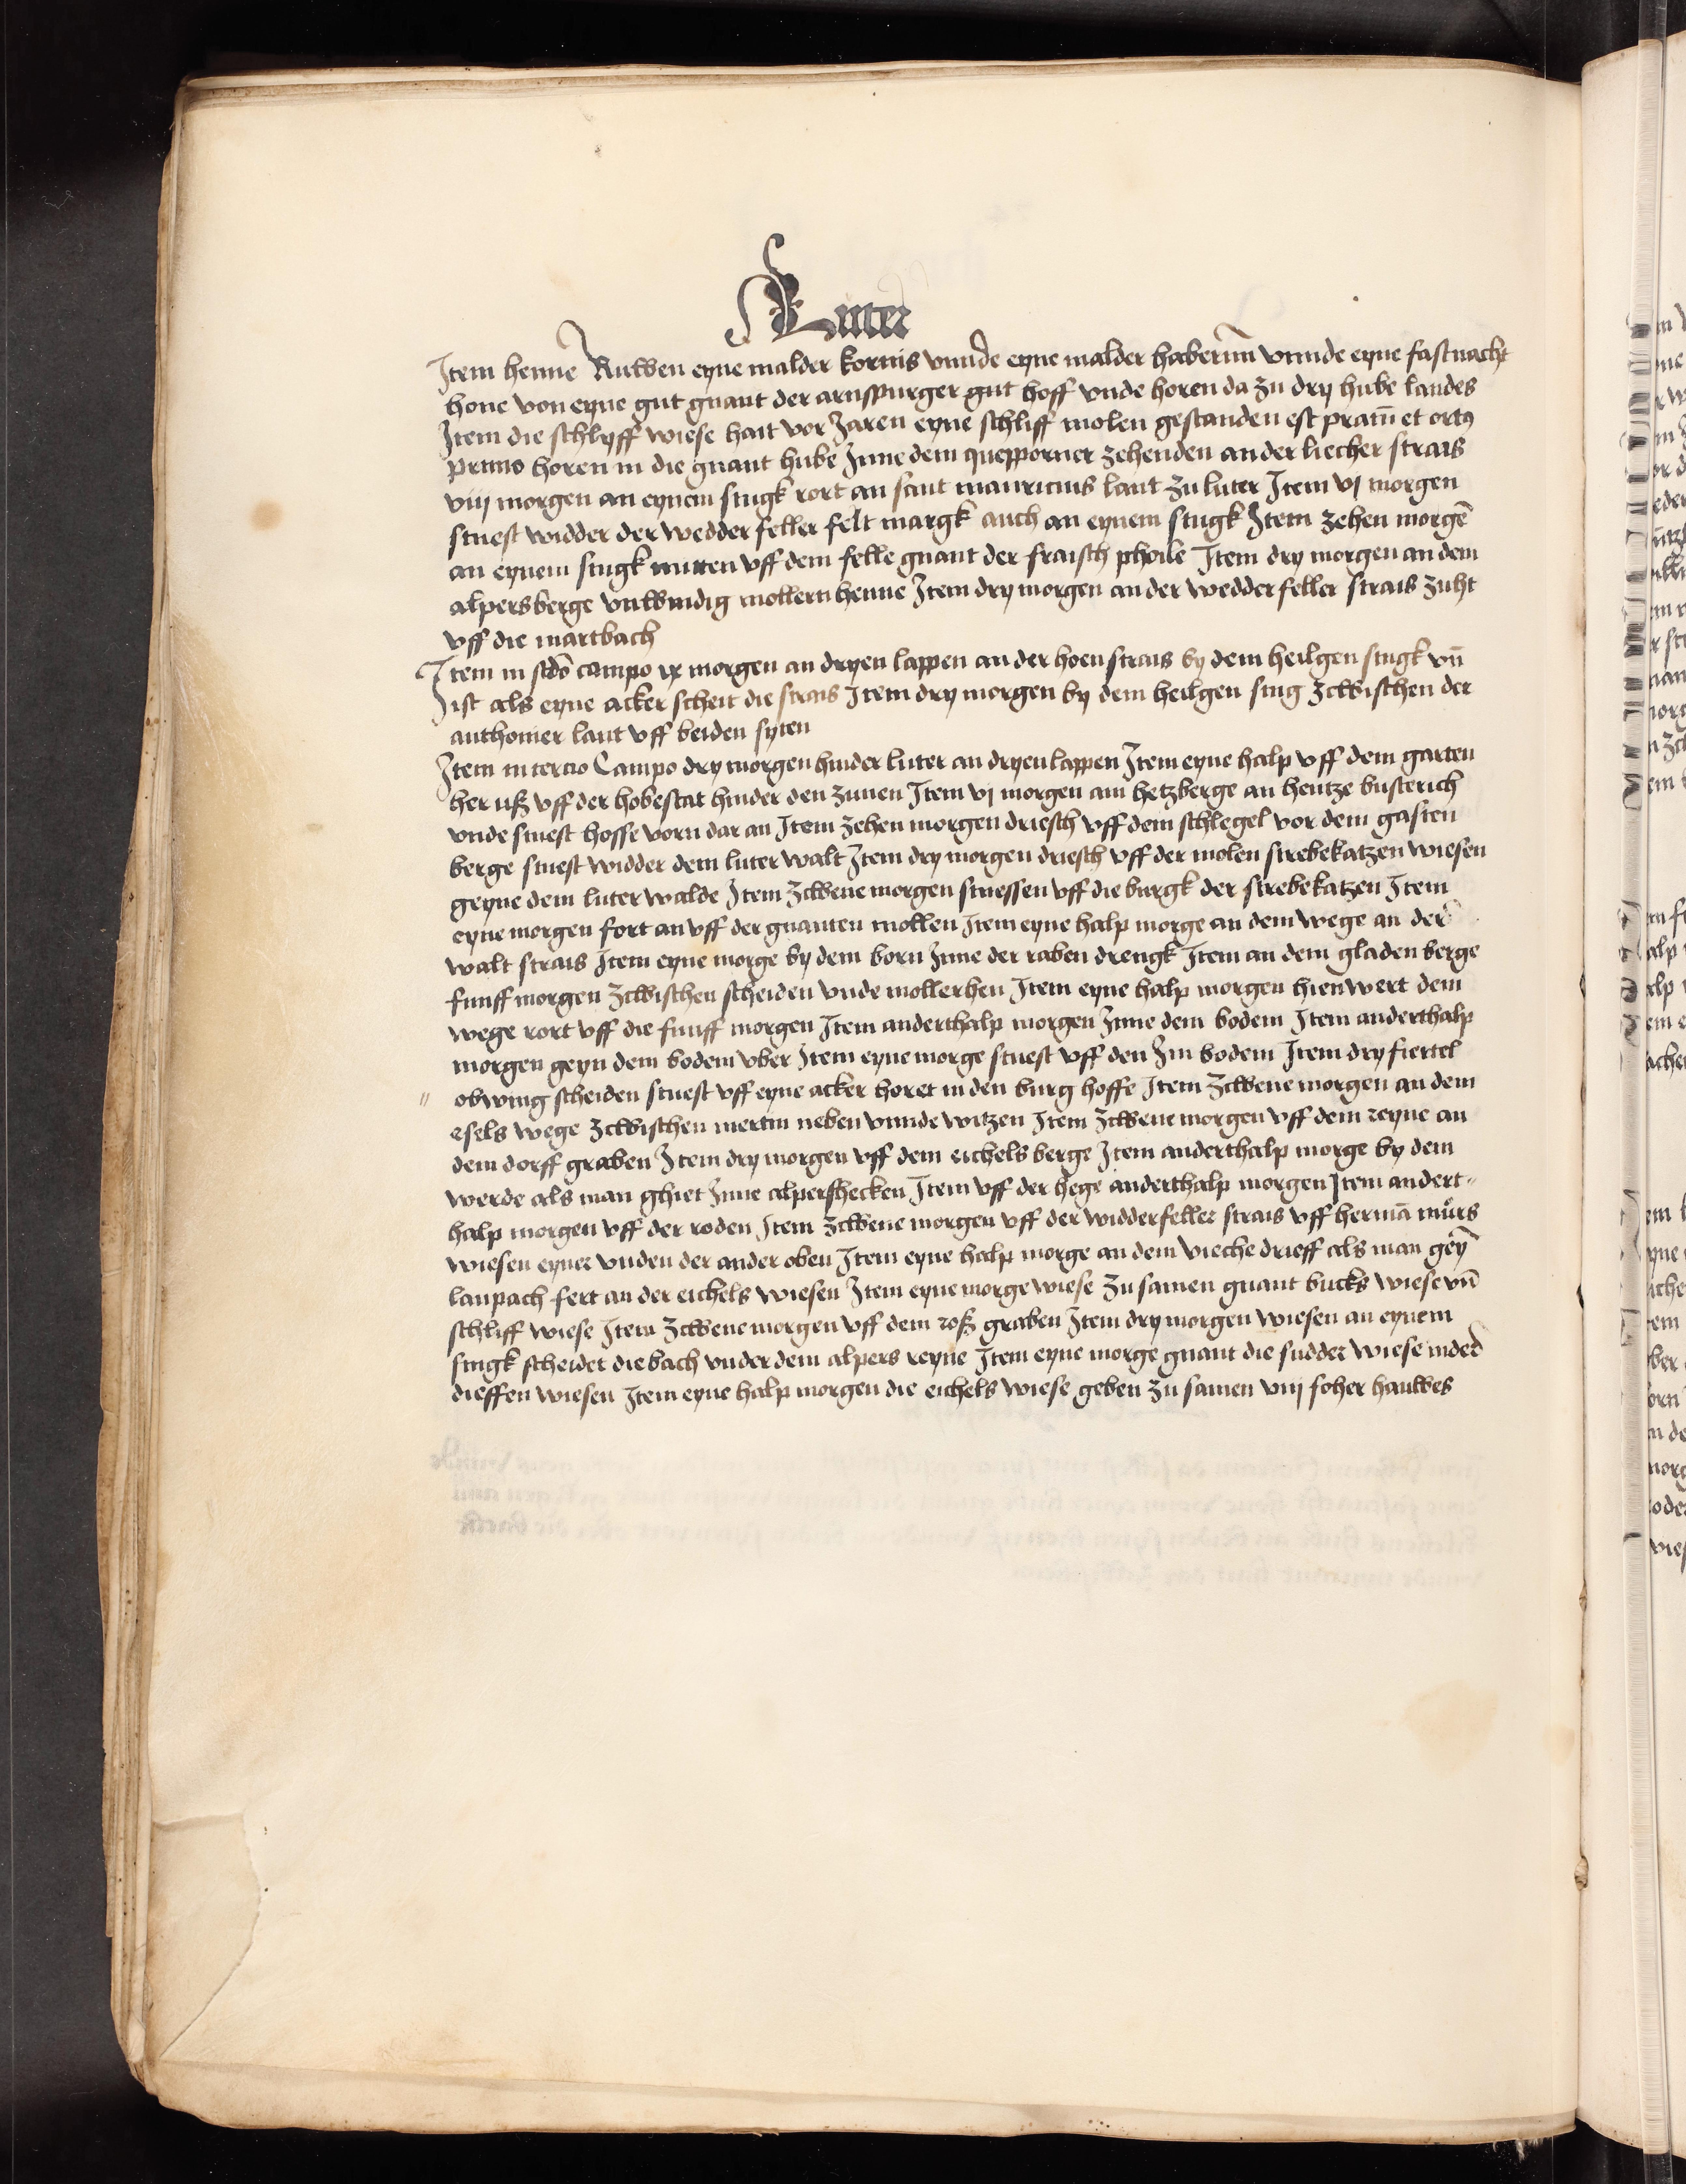 Luter
Item henne Ruwen eyne malder kornis vnnde eyne malder habernn vnnde eyne fastnacht
hone von eyne gut gnant der arnspurger gut hoff vnde horen da zu dry hube landes
Item die schlyff wiese hait vor Jaren eyne schliff molen gestanden est pratū et ortꝰ
primo horen in die gnant hube Inne dem quepporner zehenden an der liecher strais
viij morgen an eynem stugk rort an sant mauricius lant zu luter Item vj morgen
stuest widder der wedderfeller felt margk auch an eynem stugk Item zehen morgē
an eynem stugk mitten vff dem felle gnant der fraisch phoile Item dry morgen an dem
alpersberge vnwindig mollern henne Item dry morgen an der wedderfeller strais zuht
vff die martbach
Item in scdō campo ix morgen an dryen lappen an der hoen strais by dem heilgen stugk vñ
ist als eyne acker scheit die strais Item dry morgen by dem heilgen stug zcwischen der
anthonier lant vff beiden syten
Item in tercio Campo dry morgen hinder luter an dryen lappen Item eyne halp vff dem garten
her uß vff der hobestat hinder den zunen Item vj morgen am hetzberge an hentze busterich
vnde stuest hosse vorn dar an Item zehen morgen driesch vff dem schlegel vor dem gasten
berge stuest widder dem luter walt Item dry morgen driesch vff der molen strebekatzen wiesen
geyne dem luter walde Item zcwene morgen stuessen vff die burgk der strebekatzen Item
eyne morgen fort an vff der gnanten mollen Item eyne halp morge an dem wege an der
walt strais Item eyne morge by dem born Inne der raben drengk Item an dem gladen berge
funff morgen zcwischen scheiden vnde mollerhen Item eyne halp morgen hienwert dem
wege rort vff die funff morgen Item anderthalp morgen Inne dem bodem Item anderthalp
morgen geyn dem bodem vber Item eyne morge stuest vff den Im bodem Item dry fiertel
obwing scheiden stuest vff eyne acker horet in den burg hoffe Item zcwene morgen an dem
esels wege zcwischen mertin neben vnnde witzen Item zcwene morgen vff dem reyne an
dem dorff graben Item dry morgen vff dem eichels berge Item anderthalp morge by dem
werde als man ghiet Inne alpershecken Item vff der hege anderthalp morgen Item andert⸗
halp morgen vff der roden Item zcwene morgen vff der widderfeller strais vff hermā mürs
wiesen eyner vnden der ander oben Item eyne halp morge an dem vieche drieff als man geȳ
laupach fert an der eichels wiesen Item eyne morge wiese zu samen gnant bucks wiese vñ
schliff wiese Item zcwene morgen vff dem roß graben Item dry morgen wiesen an eynem
stugk scheidet die bach vnder dem alpers reyne Item eyne morge gnant die sudder wiese in der
dieffen wiesen Item eyne halp morgen die eichels wiese geben zu samen viij foher hauwes